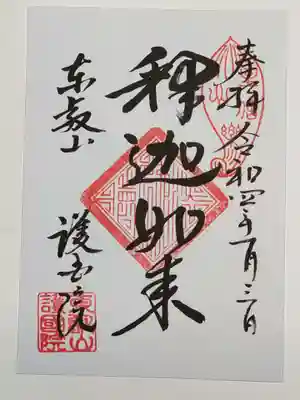 奉拝 令和四年一月三日
釈迦如来
東叡山
護国院
東叡山
護國院